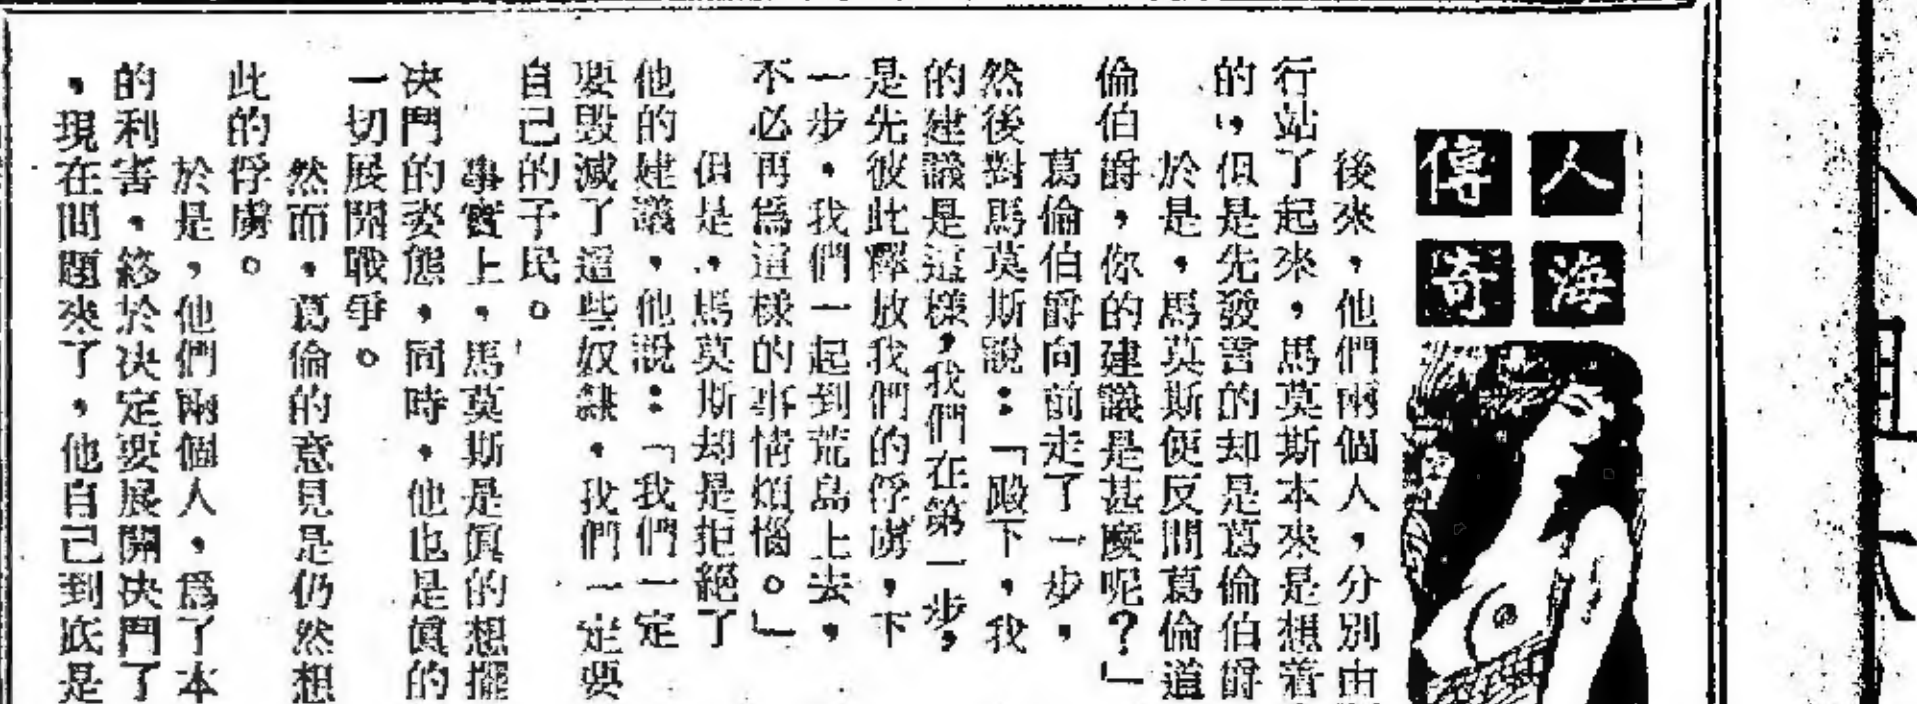 人海
傳奇
後來，他們兩個人，分別由
行站了起來，馬莫斯本來是想着
的，但是先發言的却是葛倫伯爵
於是，馬莫斯便反問葛倫道
倫伯爵，你的建議是甚麼呢？」
葛倫伯爵向前走了一步，
然後對馬莫斯說：「殿下，我
的建議是這樣，我們在第一步，
是先彼此釋放我們的俘虜，下
一步，我們一起到荒島上去，
不必再爲這樣的事情煩惱。」
但是，馬莫斯却是拒絕了
他的建議，他說：「我們一定
要毀滅了這些奴隸，我們一定要
自己的子民。
事實上，馬莫斯是眞的想擺
决鬥的姿態，同時，他也是眞的
一切展開戰爭。
然而，葛倫的意見是仍然想
此的俘虜。
於是，他們兩個人，爲了本
的利害，終於决定要展開决鬥了
，現在問題來了，他自己到底是